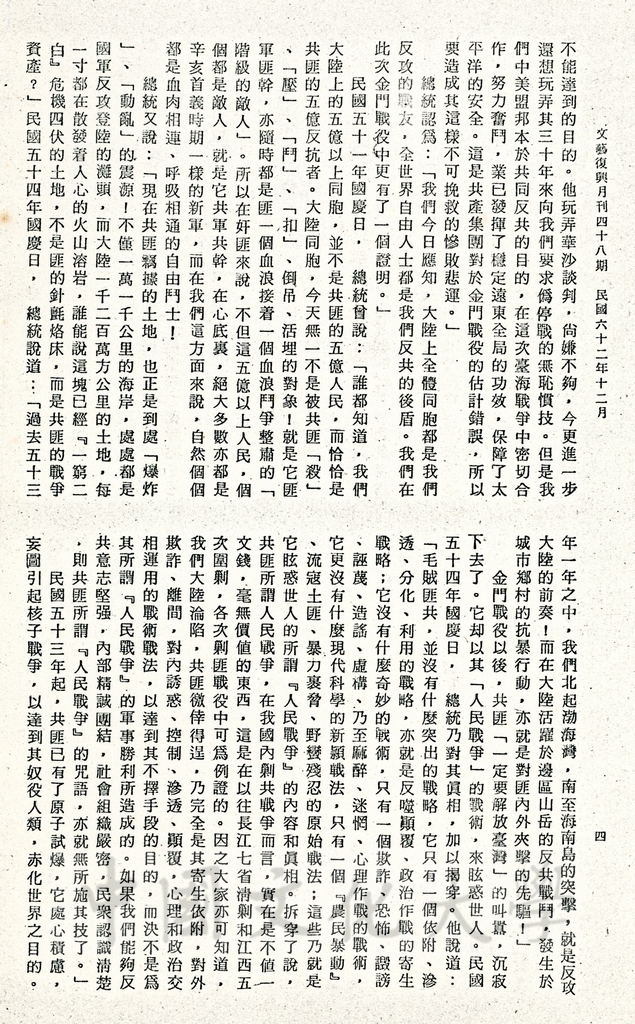 文藝復興月刊四十八期　民國六十二年十二月
四
不能達到的目的。他玩弄華沙談判，尙嫌不夠，今更進一步
還想玩弄其三十年來向我們要求僞停戰的無恥慣技。但是我
們中美盟邦本於共同反共的目的，在這次臺海戰爭中密切合
作，努力奮鬥，業已發揮了穩定遠東全局的功效，保障了太
平洋的安全。這是共產集團對於金門戰役的估計錯誤，所以
要造成其這樣不可挽救的慘敗悲運。」
總統認爲：「我們今日應知，大陸上全體同胞都是我們
反攻的戰友，全世界自由人士都是我們反共的後盾。我們在
此次金門戰役中更有了一個證明。」
民國五十一年國慶日，　總統曾說：「誰都知道，我們
大陸上的五億以上同胞，並不是共匪的五億人民，而恰恰是
共匪的五億反抗者。大陸同胞，今天無一不是被共匪「殺」
、「壓」、「鬥」、「扣」、倒吊、活埋的對象！就是它匪
軍匪幹，亦隨時都是匪一個血浪接着一個血浪鬥爭整肅的「
階級的敵人」。所以在奸匪來說，不但這五億以上人民，個
個都是敵人，就是它共軍共幹，在心底裏，絕大多數亦都是
辛亥首義時期一樣的新軍，而在我們這方面來說，自然個個
都是血肉相連、呼吸相通的自由鬥士！
總統又說：「現在共匪竊據的土地，也正是到處「爆炸
」、「動亂」的震源！不僅一萬一千公里的海岸，處處都是
國軍反攻登陸的灘頭，而大陸一千二百萬方公里的土地，每
一寸都在散發着人心的火山溶岩，誰能說這塊已經『一窮二
白』危機四伏的土地，不是匪的針氈烙床，而是共匪的戰爭
資產？」民國五十四年國慶日，　總統說道：「過去五十三
年一年之中，我們北起渤海灣，南至海南島的突擊，就是反攻
大陸的前奏！而在大陸活躍於邊區山岳的反共戰鬥，發生於
城市鄉村的抗暴行動，亦就是對匪內外夾擊的先驅！」
金門戰役以後，共匪「一定要解放臺灣」的叫囂，沉寂
下去了。它却以其「人民戰爭」的戰術，來眩惑世人。民國
五十四年國慶日，　總統乃對其眞相，加以揭穿。他說道：
「毛賊匪共，並沒有什麼突出的戰略，它只有一個依附、滲
透、分化、利用的戰略，亦就是反噬顚覆、政治作戰的寄生
戰略；它沒有什麼奇妙的戰術，只有一個欺詐、恐怖、譭謗
、誣蔑、造謠、虛構、乃至麻醉、迷惘、心理作戰的戰術，
它更沒有什麼現代科學的新頴戰法，只有一個『農民暴動』
、流寇土匪、暴力裹脅、野蠻殘忍的原始戰法；這些乃就是
它眩惑世人的所謂『人民戰爭』的內容和眞相。拆穿了說，
共匪所謂人民戰爭，在我國內剿共戰爭而言，實在是不值一
文錢，毫無價値的東西，這是在以往長江七省清剿和江西五
次圍剿，各次剿匪戰役中可爲例證的。因之大家亦可知道，
我們大陸淪陷，共匪徼倖得逞，乃完全是其寄生依附，對外
欺詐、離間，對內誘惑、控制、滲透、顚覆，心理和政治交
相運用的戰術戰法，以達到其不擇手段的目的，而決不是爲
其所謂『人民戰爭』的軍事勝利所造成的。如果我們能夠反
共意志堅强，內部精誠團結，社會組織嚴密，民衆認識清楚
，則共匪所謂『人民戰爭』的咒語，亦就無所施其技了。」
民國五十三年起，共匪已有了原子試爆，它處心積慮，
妄圖引起核子戰爭，以達到其奴役人類，赤化世界之目的。
中國文化大學